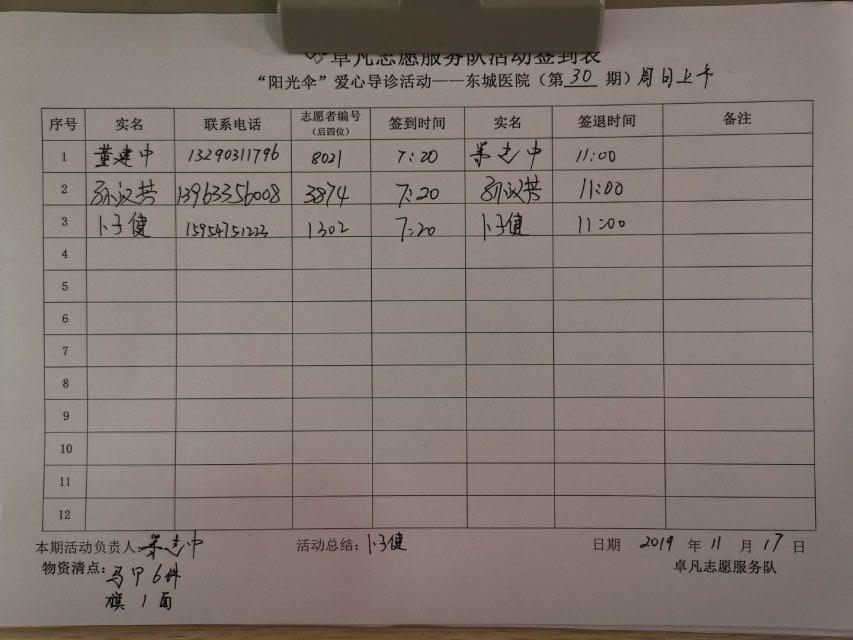 卓凡志愿服务队活动签到表
“阳光伞”爱心导诊活动——东城医院（第30期）周日上午
序号 实名 联系电话 志愿者编号（后四位） 签到时间 实名 签退时间 备注
1 董建中 13290311796 8021 7:20 11:00
2 孙汉芸 13963356008 3874 7:20 孙汉芸 11:00
3 卜子健 15954751223 1302 7:20 卜子健 11:00
4
5
6
7
8
9
10
11
12
本期活动负责人: 活动总结: 卜子健 日期 2019 年 11 月 17 日
物资清点: 马甲6件 卓凡志愿服务队
旗1面